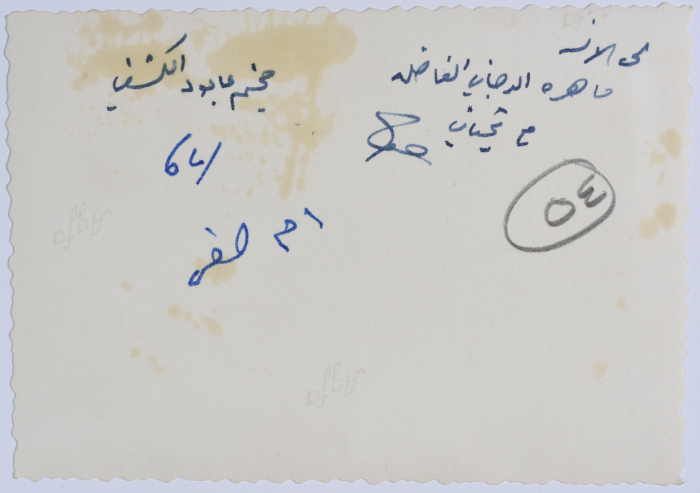 الى الانسه
ماهره الدجاني الفاضله
مع تحياتي
مخيم عابود الكشفي
٥٤
ام الصفا
Agfa
Agfa
Agfa